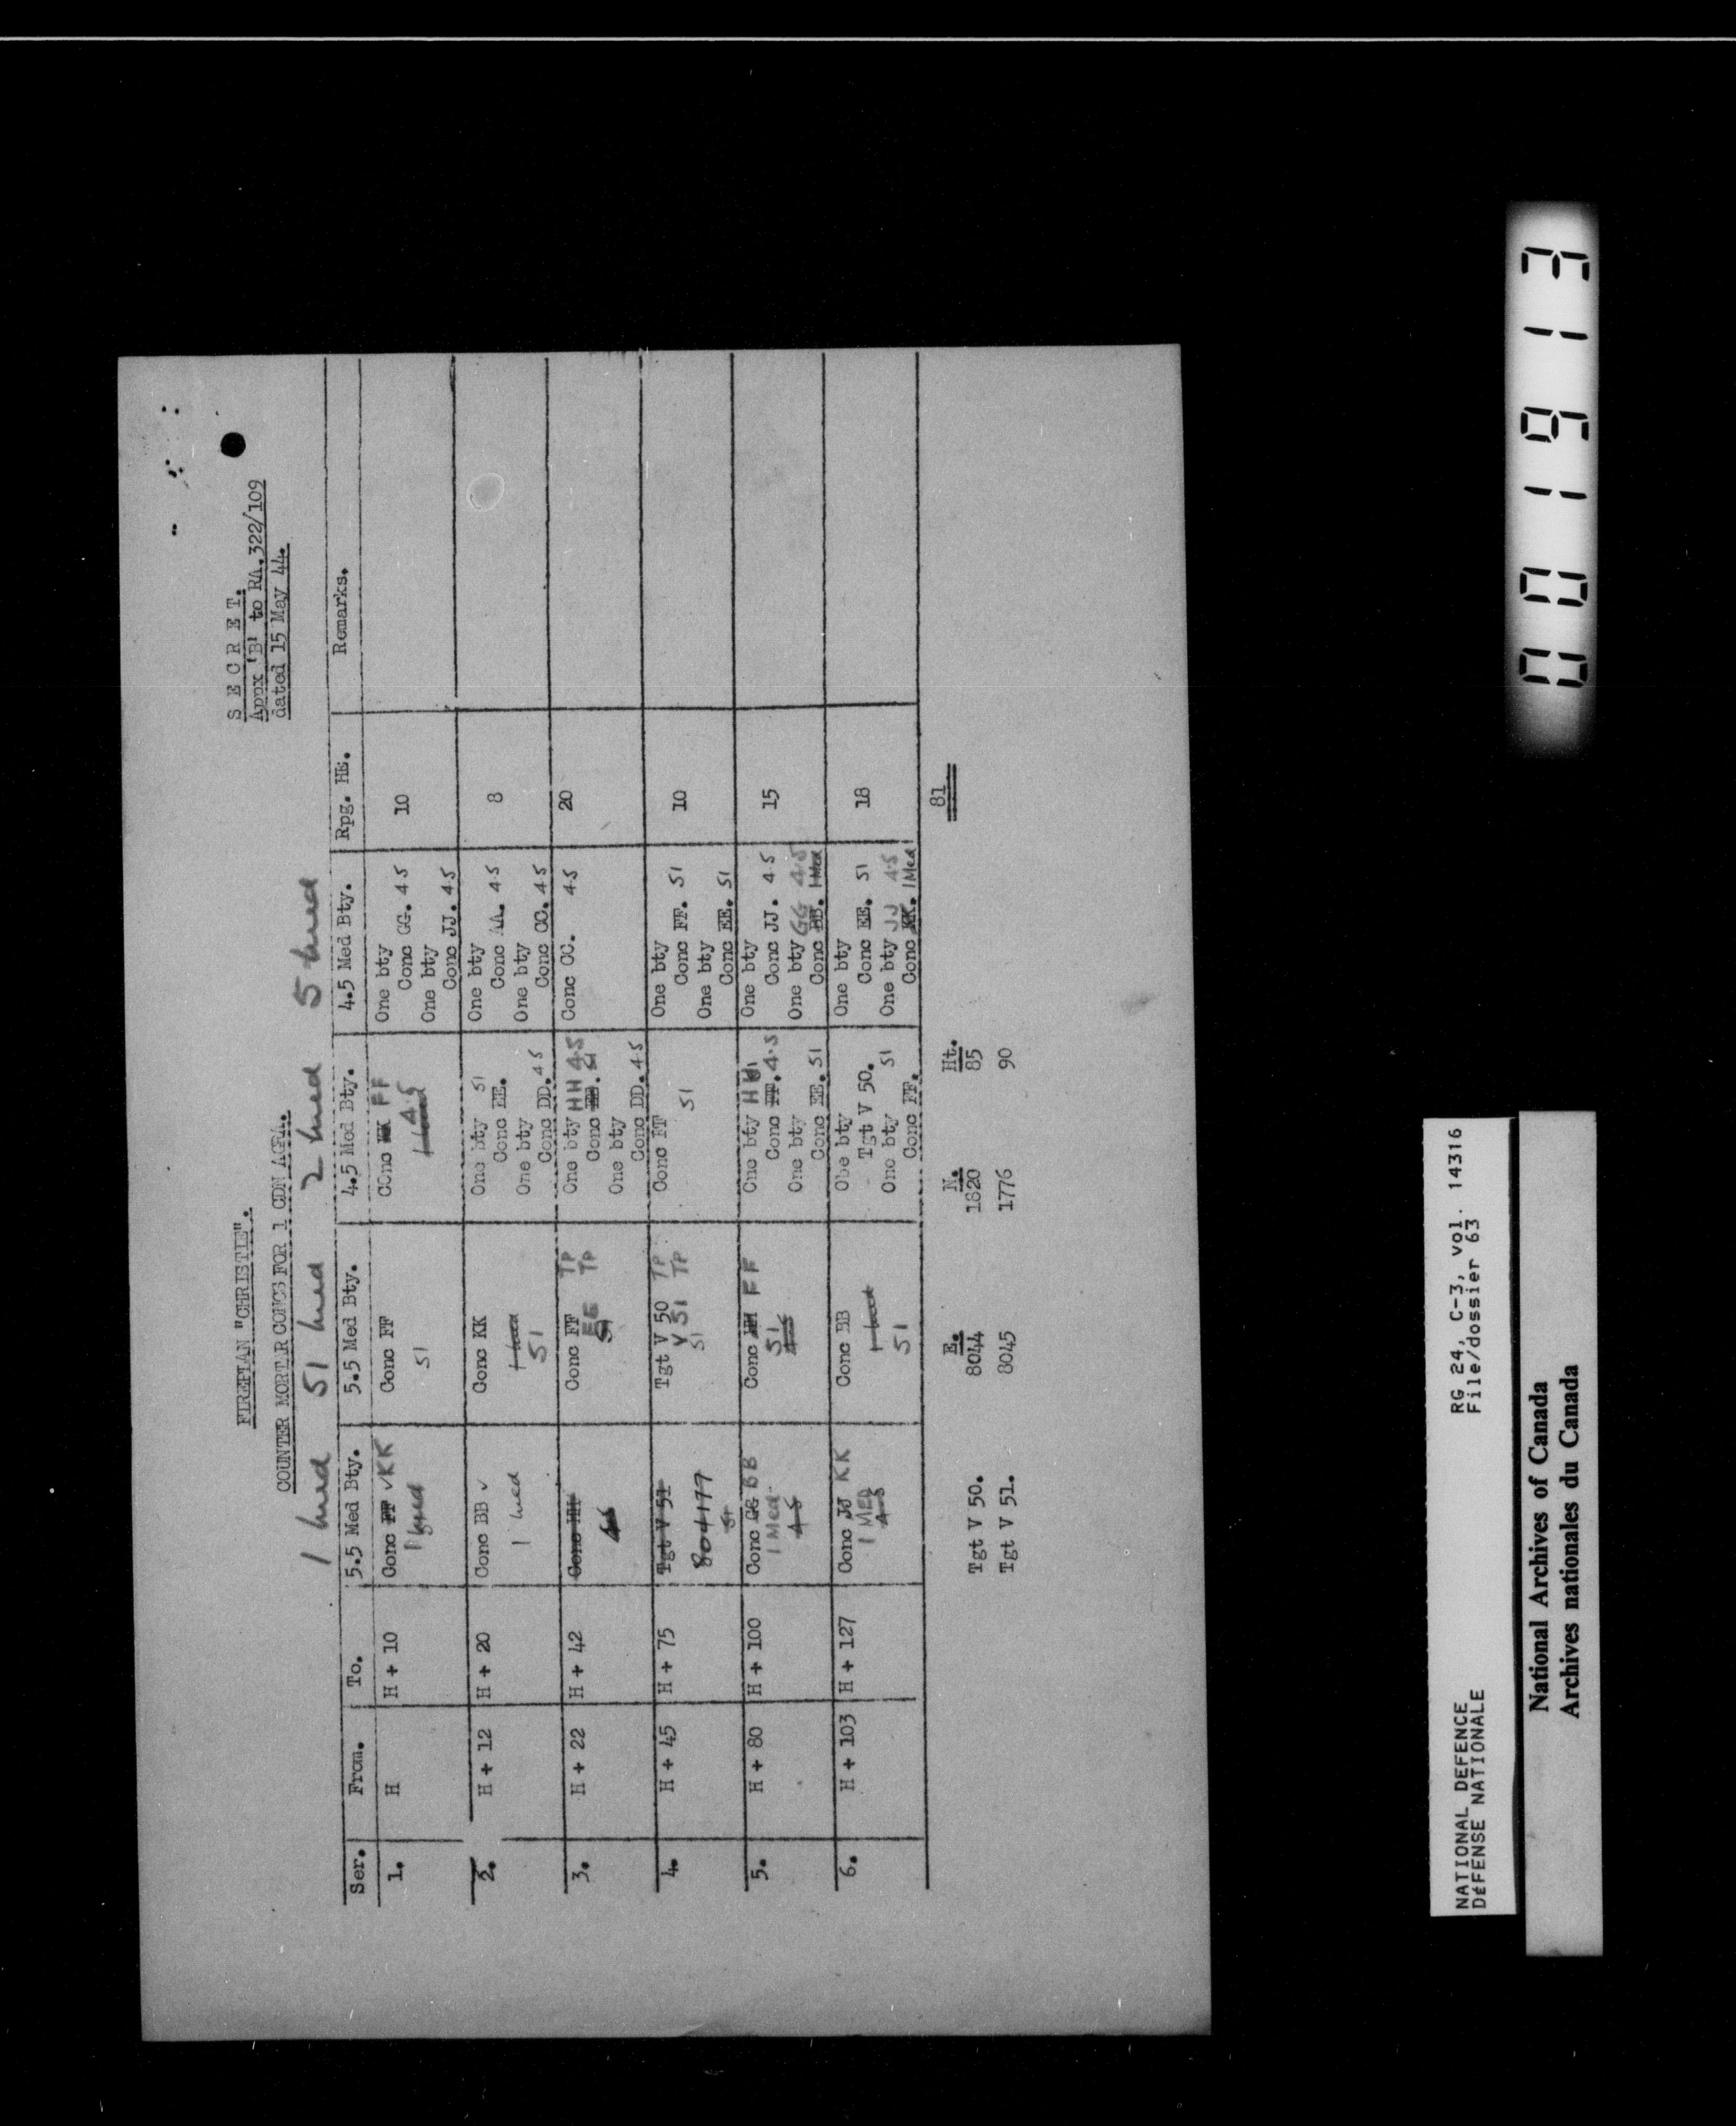 S E C R E T.
Appx 'B' to RA.322/109
dated 15 May 44.
FIREPLAN "CHRISTIE".
COUNTER MORTAR CONCS FOR 1 CDN AGRA.
1 Med 51 Med 2 Med 5 Med
Ser. From. To. 5.5 Med Bty. 5.5 Med Bty. 4.5 Med Bty. 4.5 Med Bty. Rpg. HE. Remarks.
1. H H + 10 Conc FF ✓ KK Conc FF Conc KK FF One bty 10
51 4.5 Conc GG. 4.5
1 Med One bty
Conc JJ. 4.5
2. H + 12 H + 20 Conc BB ✓ Conc KK One bty 51 One bty 8
1 Med 1 Med Conc EE. Conc AA. 4.5
51 One bty One bty
Conc DD. 4.5 Conc CC. 4.5
3. H + 22 H + 42 Conc HH Conc FF TP One bty HH 4.5 Conc CC. 4.5 20
EE TP Conc 51
51 One bty
Conc DD. 4.5
4. H + 45 H + 75 Tgt V 51 Tgt V 50 TP Conc FF One bty 10
V 51 TP 51 Conc FF. 51
804177 51 One bty
51 Conc EE. 51
5. H + 80 H + 100 Conc GG BB Conc HH FF One bty HH One bty 15
1 Med 51 Conc FF. 4.5 Conc JJ. 4.5
4.5 4.5 One bty One bty GG 4.5
Conc EE. 51 Conc BB. 1 Med
6. H + 103 H + 127 Conc JJ KK Conc BB One bty One bty 18
1 MED 1 Med Tgt V 50. Conc EE. 51
4.5 51 One bty 51 One bty JJ 4.5
Conc FF. Conc KK. 1 Med
81
E. N. Ht.
Tgt V 50. 8044 1820 85
Tgt V 51. 8045 1776 90
NATIONAL DEFENCE RG 24, C-3, vol. 14316
DÉFENSE NATIONALE File/dossier 63
National Archives of Canada
Archives nationales du Canada
001913